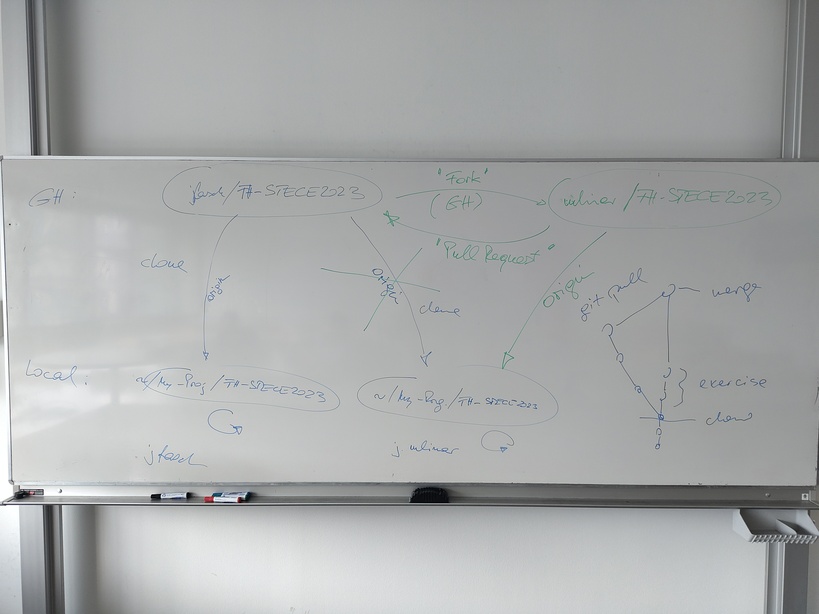 GH:
jfasch/FH-STECE2023
"Fork"
(GH)
"Pull Request"
/FH-STECE2023
clone
origin
origin
clone
origin
git pull
merge
exercise
clone
Local:
~/My-Prog/FH-STECE2023
~/My-Prog/FH-STECE2023
jfasch